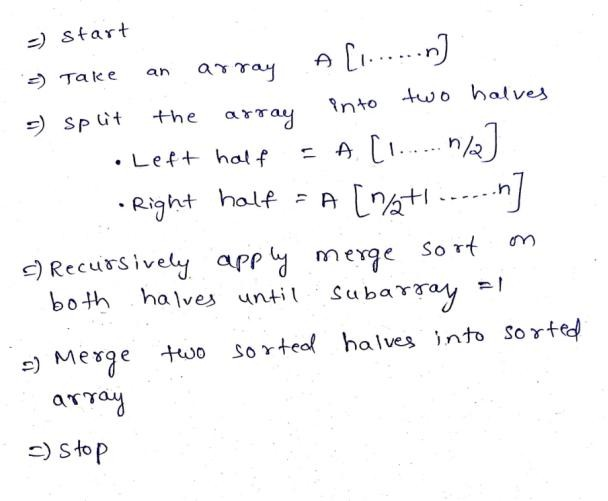 =) Start
=) Take an array A [1......n]
=) split the array into two halves
• Left half = A [1..... n/2]
• Right half = A [n/2+1 ......n]
=) Recursively apply merge sort on
both halves until subarray =1
=) Merge two sorted halves into sorted
array
=) Stop